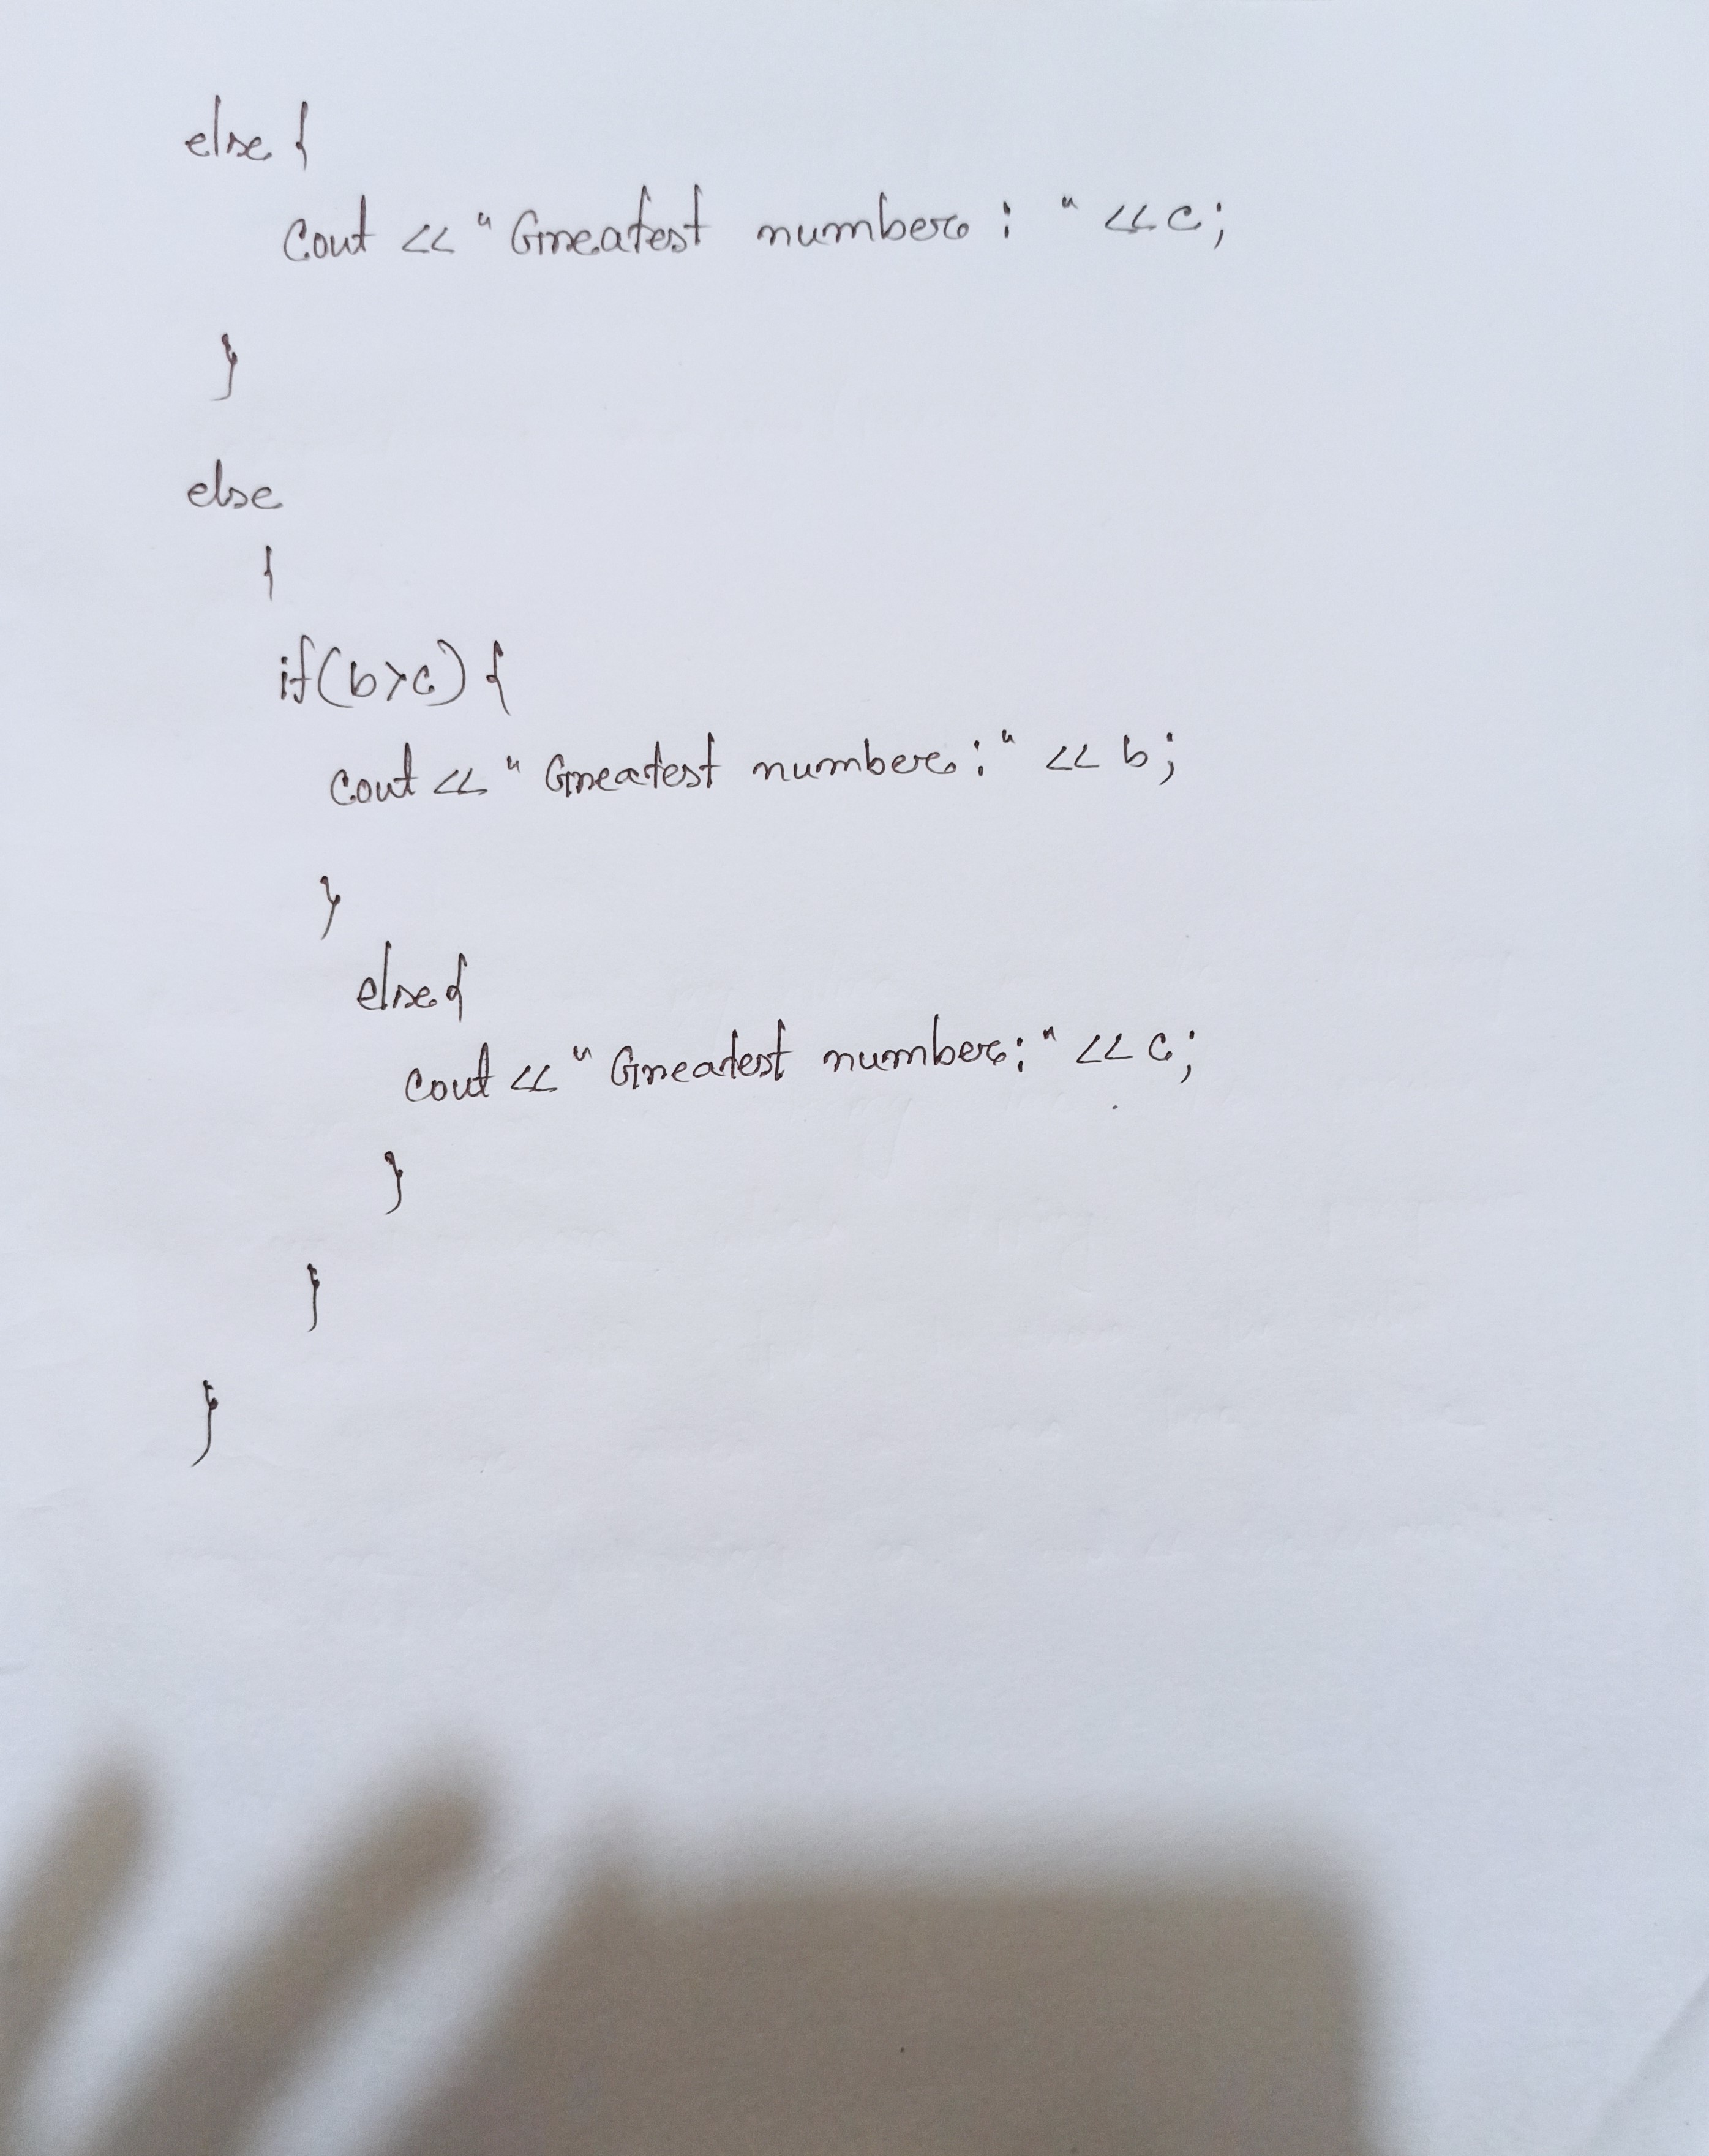 else {
cout << "Greatest number : " << c;
}
else
{
if(b>c) {
cout << " Greatest number:" << b;
}
else{
cout << " Greatest number:" << c;
}
}
}